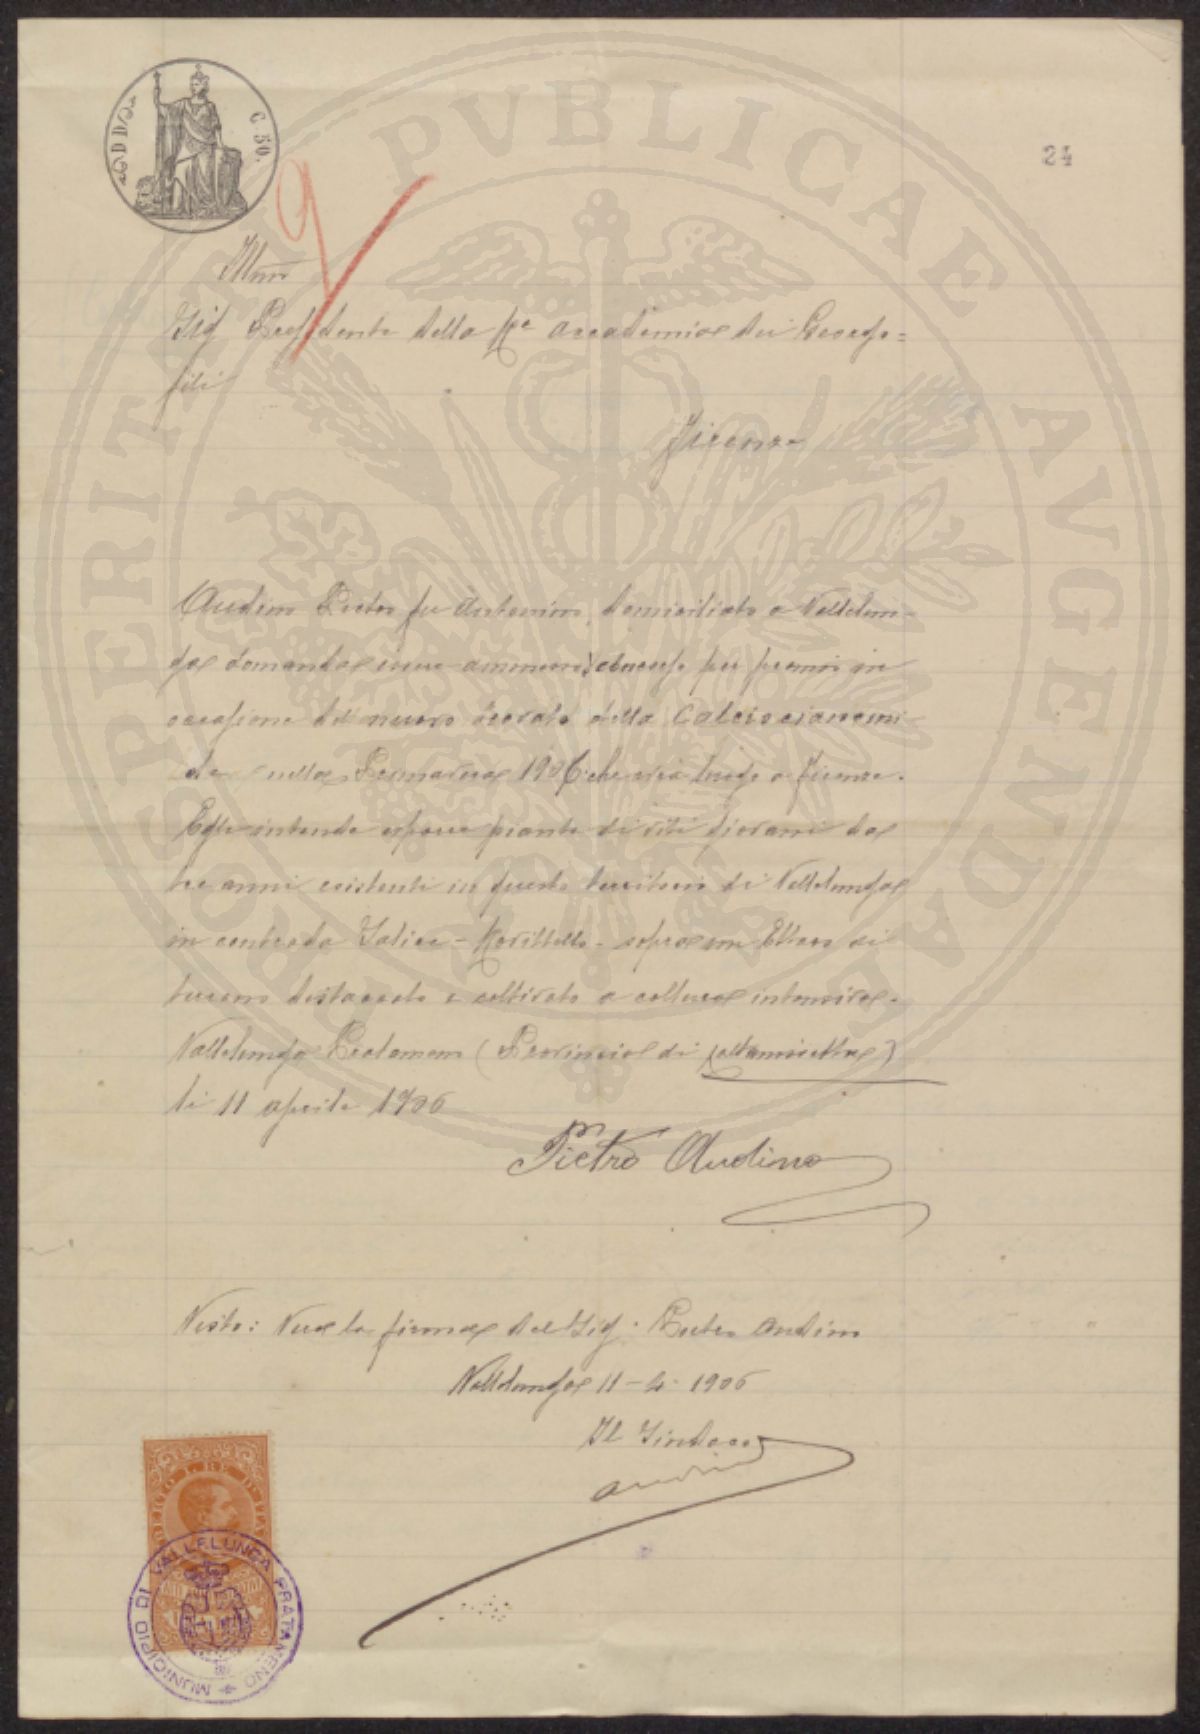 DD
C. 50.
24
9
Illmo
Sig Presidente della Re accademia dei Georgo=
fili
Firenze
Audino Pietro fu Antonino, domiciliato a Vallelun-
ga domanda essere ammesso per premi in
occasione del nuovo della Calciocianami
de nella Primavera 1906 che avrà luogo a Firenze.
Egli intende esporre piante di viti giovani da
tre anni esistenti in questo territorio di Vallelunga
in contrada Salice - sopra un Ettaro di
terreno distaccato e coltivato a coltura intensiva.
Vallelunga Pratameno (Provincia di Caltanissetta)
li 11 aprile 1906
Pietro Audino
Visto: Vera la firma del Sig. Pietro Audino
Vallelunga 11-4-1906
Il Sindaco
Audino
UMBERTO I. RE D'ITALIA
MUNICIPIO DI VALLELUNGA PRATAMENO
PROSPERITATI PVBLICAE AVGENDAE